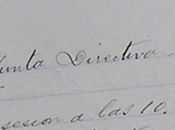 Junta Directiva
sesion a las 10.